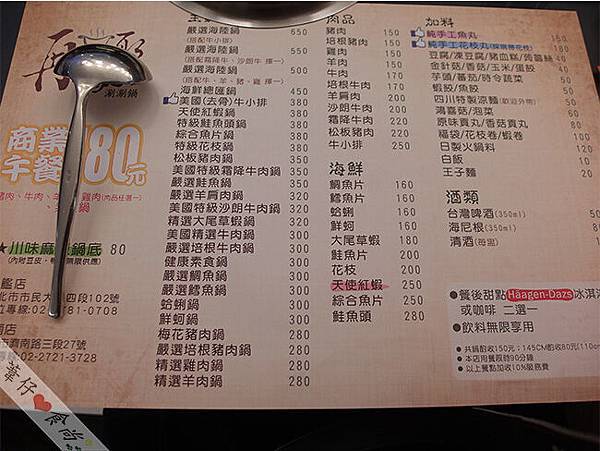 涮涮鍋
商業
午餐180元
★川味麻 鍋底 80
北市市民大 四段102號
市濟南路三段27號
專線:02-2721-3728
嚴選海陸鍋 650
(搭配牛小排)
嚴選海陸鍋 550
嚴選海陸鍋 500
海鮮總匯鍋 450
美國(去骨)牛小排 380
天使紅蝦鍋 380
特級鮭魚頭鍋 380
綜合魚片鍋 350
特級花枝鍋 350
松板豬肉鍋 350
美國特級霜降牛肉鍋 350
嚴選鮭魚鍋 380
嚴選羊肩肉鍋 320
美國特級沙朗牛肉鍋 320
精選大尾草蝦鍋 320
美國精選牛肉鍋 300
嚴選培根牛肉鍋 300
健康素食鍋 300
嚴選鯛魚鍋 300
嚴選鱈魚鍋 300
蛤蜊鍋 300
鮮蚵鍋 300
梅花豬肉鍋 280
嚴選培根豬肉鍋 280
精選雞肉鍋 280
精選羊肉鍋 280
肉品
豬肉 150
培根豬肉 150
雞肉 150
羊肉 150
牛肉 170
培根牛肉 170
羊肩肉 200
沙朗牛肉 200
霜降牛肉 220
松板豬肉 220
牛小排 250
海鮮
鯛魚片 160
鱈魚片 160
蛤蜊 160
鮮蚵 160
大尾草蝦 180
鮭魚片 200
花枝 200
天使紅蝦 250
綜合魚片 250
鮭魚頭 280
加料
純手工魚丸 150
純手工花枝丸 180
豆腐/凍豆腐/豬血糕/蒟蒻絲 40
金針菇/香菇/玉米/蛋餃 40
芋頭/蕃茄/時令蔬菜 50
蝦餃/魚餃 50
四川特製涼麵 50
鴻喜菇/泡菜 50
原味貢丸/香菇貢丸 50
福袋/花枝卷/蝦卷 100
日製火鍋料 110
白飯 10
王子麵 20
酒類
台灣啤酒(350ml) 50
海尼根(350ml) 80
清酒 90
●餐後甜點Häagen-Dazs冰淇淋
或咖啡 二選一
●飲料無限享用
●共鍋酌收150元;145CM酌收80元
●本店用餐限時90分鐘
●以上餐點加收10%服務費
華仔♥食尚